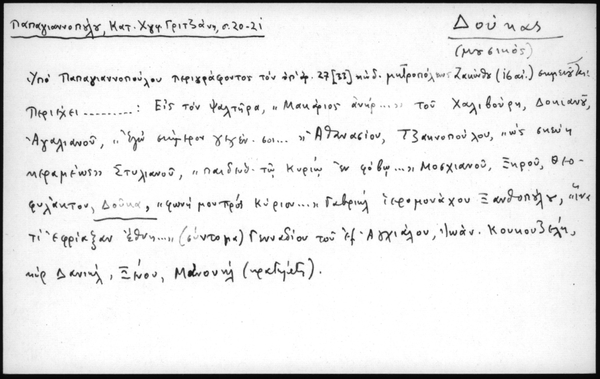 Παπαγιαννοπούλου, Κατ. Χγφ Γριτζάνη, σ. 20-21
Δούκας
(μουσικός)
Ὑπό Παπαγιαννοπούλου περιγράφοντος τόν ὑπ' ἀρ. 27 [33] κώδ. μητροπόλεως Ζακύνθου (ις΄ αἰ.)
Περιέχει ......... : Εἰς τόν ψαλτῆρα, "Μακάριος ἀνήρ..." τοῦ Χαλιβούρη, Δοκιανοῦ,
Ἀγαλιανοῦ, "Ἐγώ σήμερον γεγέν. σοι..." Ἀθανασίου, Τζακνοπούλου, "ὡς σκεύη
κεραμέως" Στυλιανοῦ, "παιδευθ. τῷ Κυρίῳ ἐν φόβῳ..." Μοσχιανοῦ, Ξηροῦ, Θεο-
φυλάκτου, Δούκα, "φωνῇ μου πρός Κύριον..." Γαβριήλ ἱερομονάχου Ξανθοπούλου, "ἵνα
τί ἐφρύαξαν ἔθνη..." (σύντομα) Γενναδίου τοῦ ἐξ Ἀγχιάλου, Ἰωάν. Κουκουζέλη,
κύρ Δανιήλ, Ξένου, Μανουήλ (κρατήμ.).